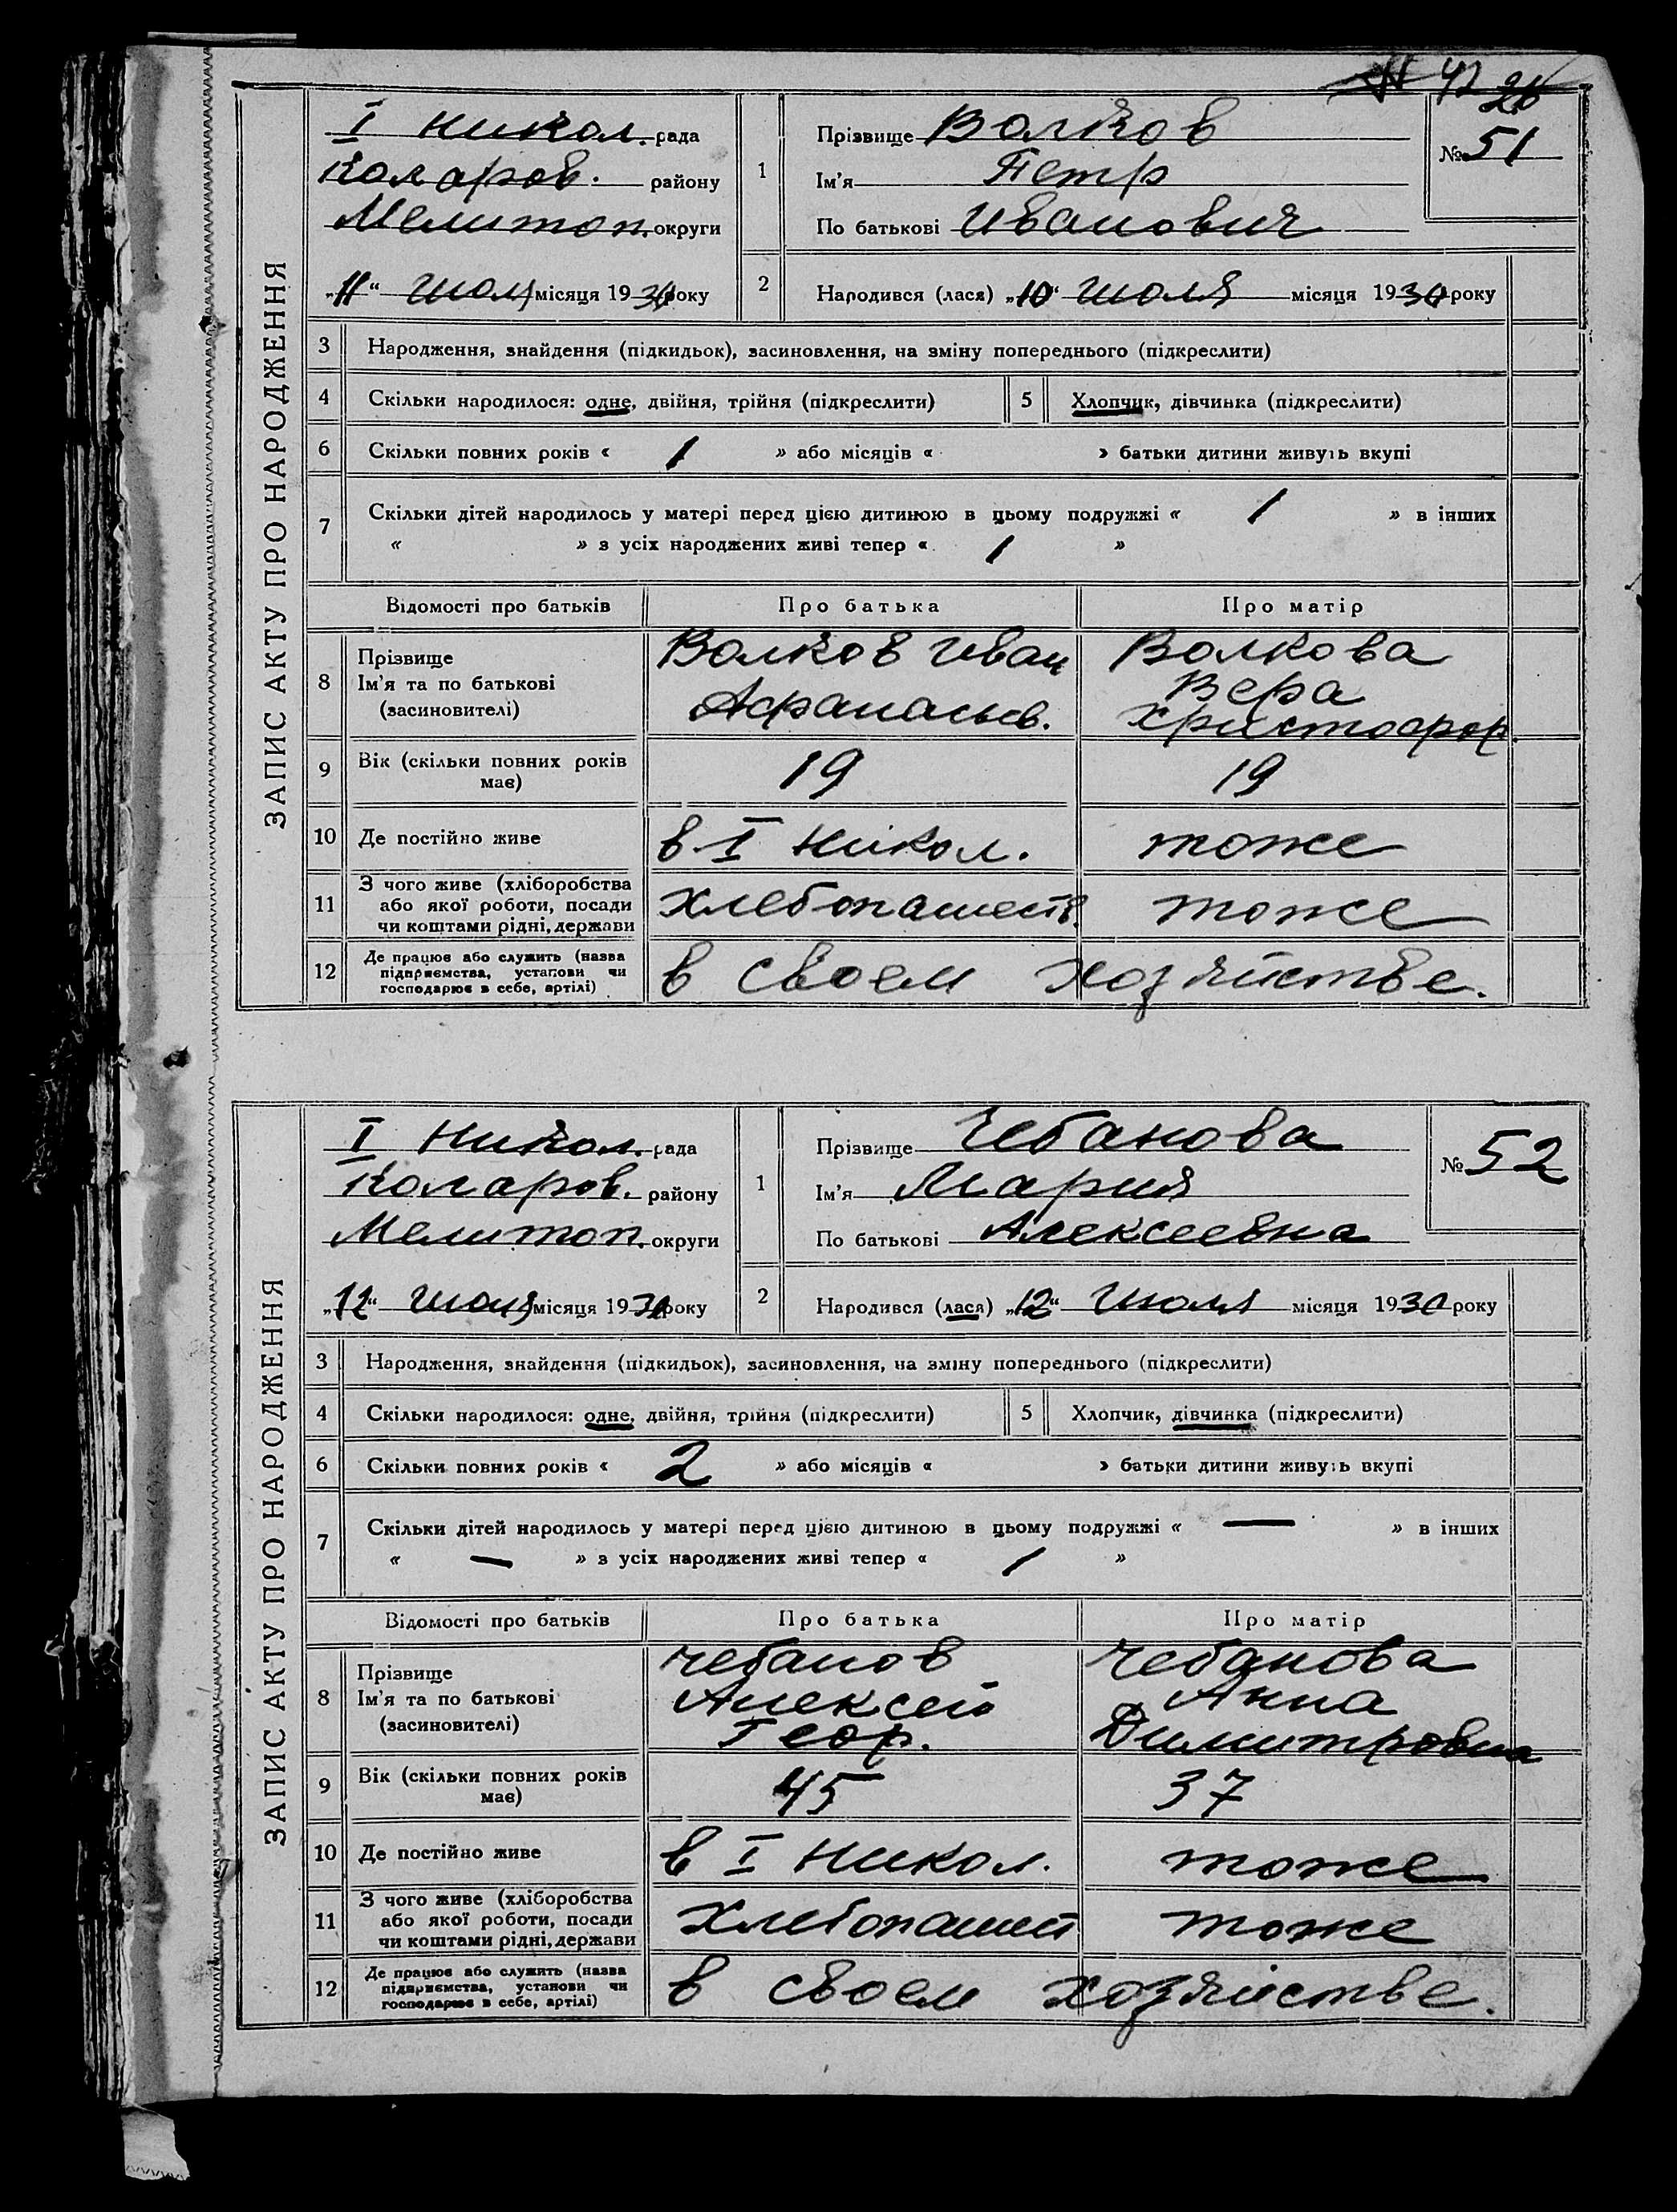 № 42 26
ЗАПИС АКТУ ПРО НАРОДЖЕННЯ
I Никол. рада
Коларов. району
Мелитоп. округи
„11“ Июля місяця 1930 року
1 Прізвище Волков
Ім'я Петр
По батькові Иванович
№ 51
2 Народився (лася) „10“ Июля місяця 1930 року
3 Народження, знайдення (підкидьок), засиновлення, на зміну попереднього (підкреслити)
4 Скільки народилося: одне, двійня, трійня (підкреслити) 5 Хлопчик, дівчинка (підкреслити)
6 Скільки повних років « 1 » або місяців « » батьки дитини живуть вкупі
7 Скільки дітей народилось у матері перед цією дитиною в цьому подружжі « 1 » в інших
« » з усіх народжених живі тепер « 1 »
Відомості про батьків Про батька Про матір
8 Прізвище Ім'я та по батькові (засиновителі)
Волков Иван
Афанасьев.
Волкова
Вера
Христофор.
9 Вік (скільки повних років має) 19 19
10 Де постійно живе в I Никол. тоже
11 З чого живе (хліборобства або якої роботи, посади чи коштами рідні, держави
Хлебопашеств. тоже
12 Де працює або служить (назва підприємства, установи чи господарює в себе, артілі)
в своем хозяйстве.
ЗАПИС АКТУ ПРО НАРОДЖЕННЯ
I Никол. рада
Коларов. району
Мелитоп. округи
„12“ Июля місяця 1930 року
1 Прізвище Чебанова
Ім'я Мария
По батькові Алексеевна
№ 52
2 Народився (лася) „12“ Июля місяця 1930 року
3 Народження, знайдення (підкидьок), засиновлення, на зміну попереднього (підкреслити)
4 Скільки народилося: одне, двійня, трійня (підкреслити) 5 Хлопчик, дівчинка (підкреслити)
6 Скільки повних років « 2 » або місяців « » батьки дитини живуть вкупі
7 Скільки дітей народилось у матері перед цією дитиною в цьому подружжі « — » в інших
« — » з усіх народжених живі тепер « 1 »
Відомості про батьків Про батька Про матір
8 Прізвище Ім'я та по батькові (засиновителі)
Чебанов
Алексей
Геор.
Чебанова
Анна
Димитровна
9 Вік (скільки повних років має) 45 37
10 Де постійно живе в I Никол. тоже
11 З чого живе (хліборобства або якої роботи, посади чи коштами рідні, держави
Хлебопашест тоже
12 Де працює або служить (назва підприємства, установи чи господарює в себе, артілі)
в своем хозяйстве.